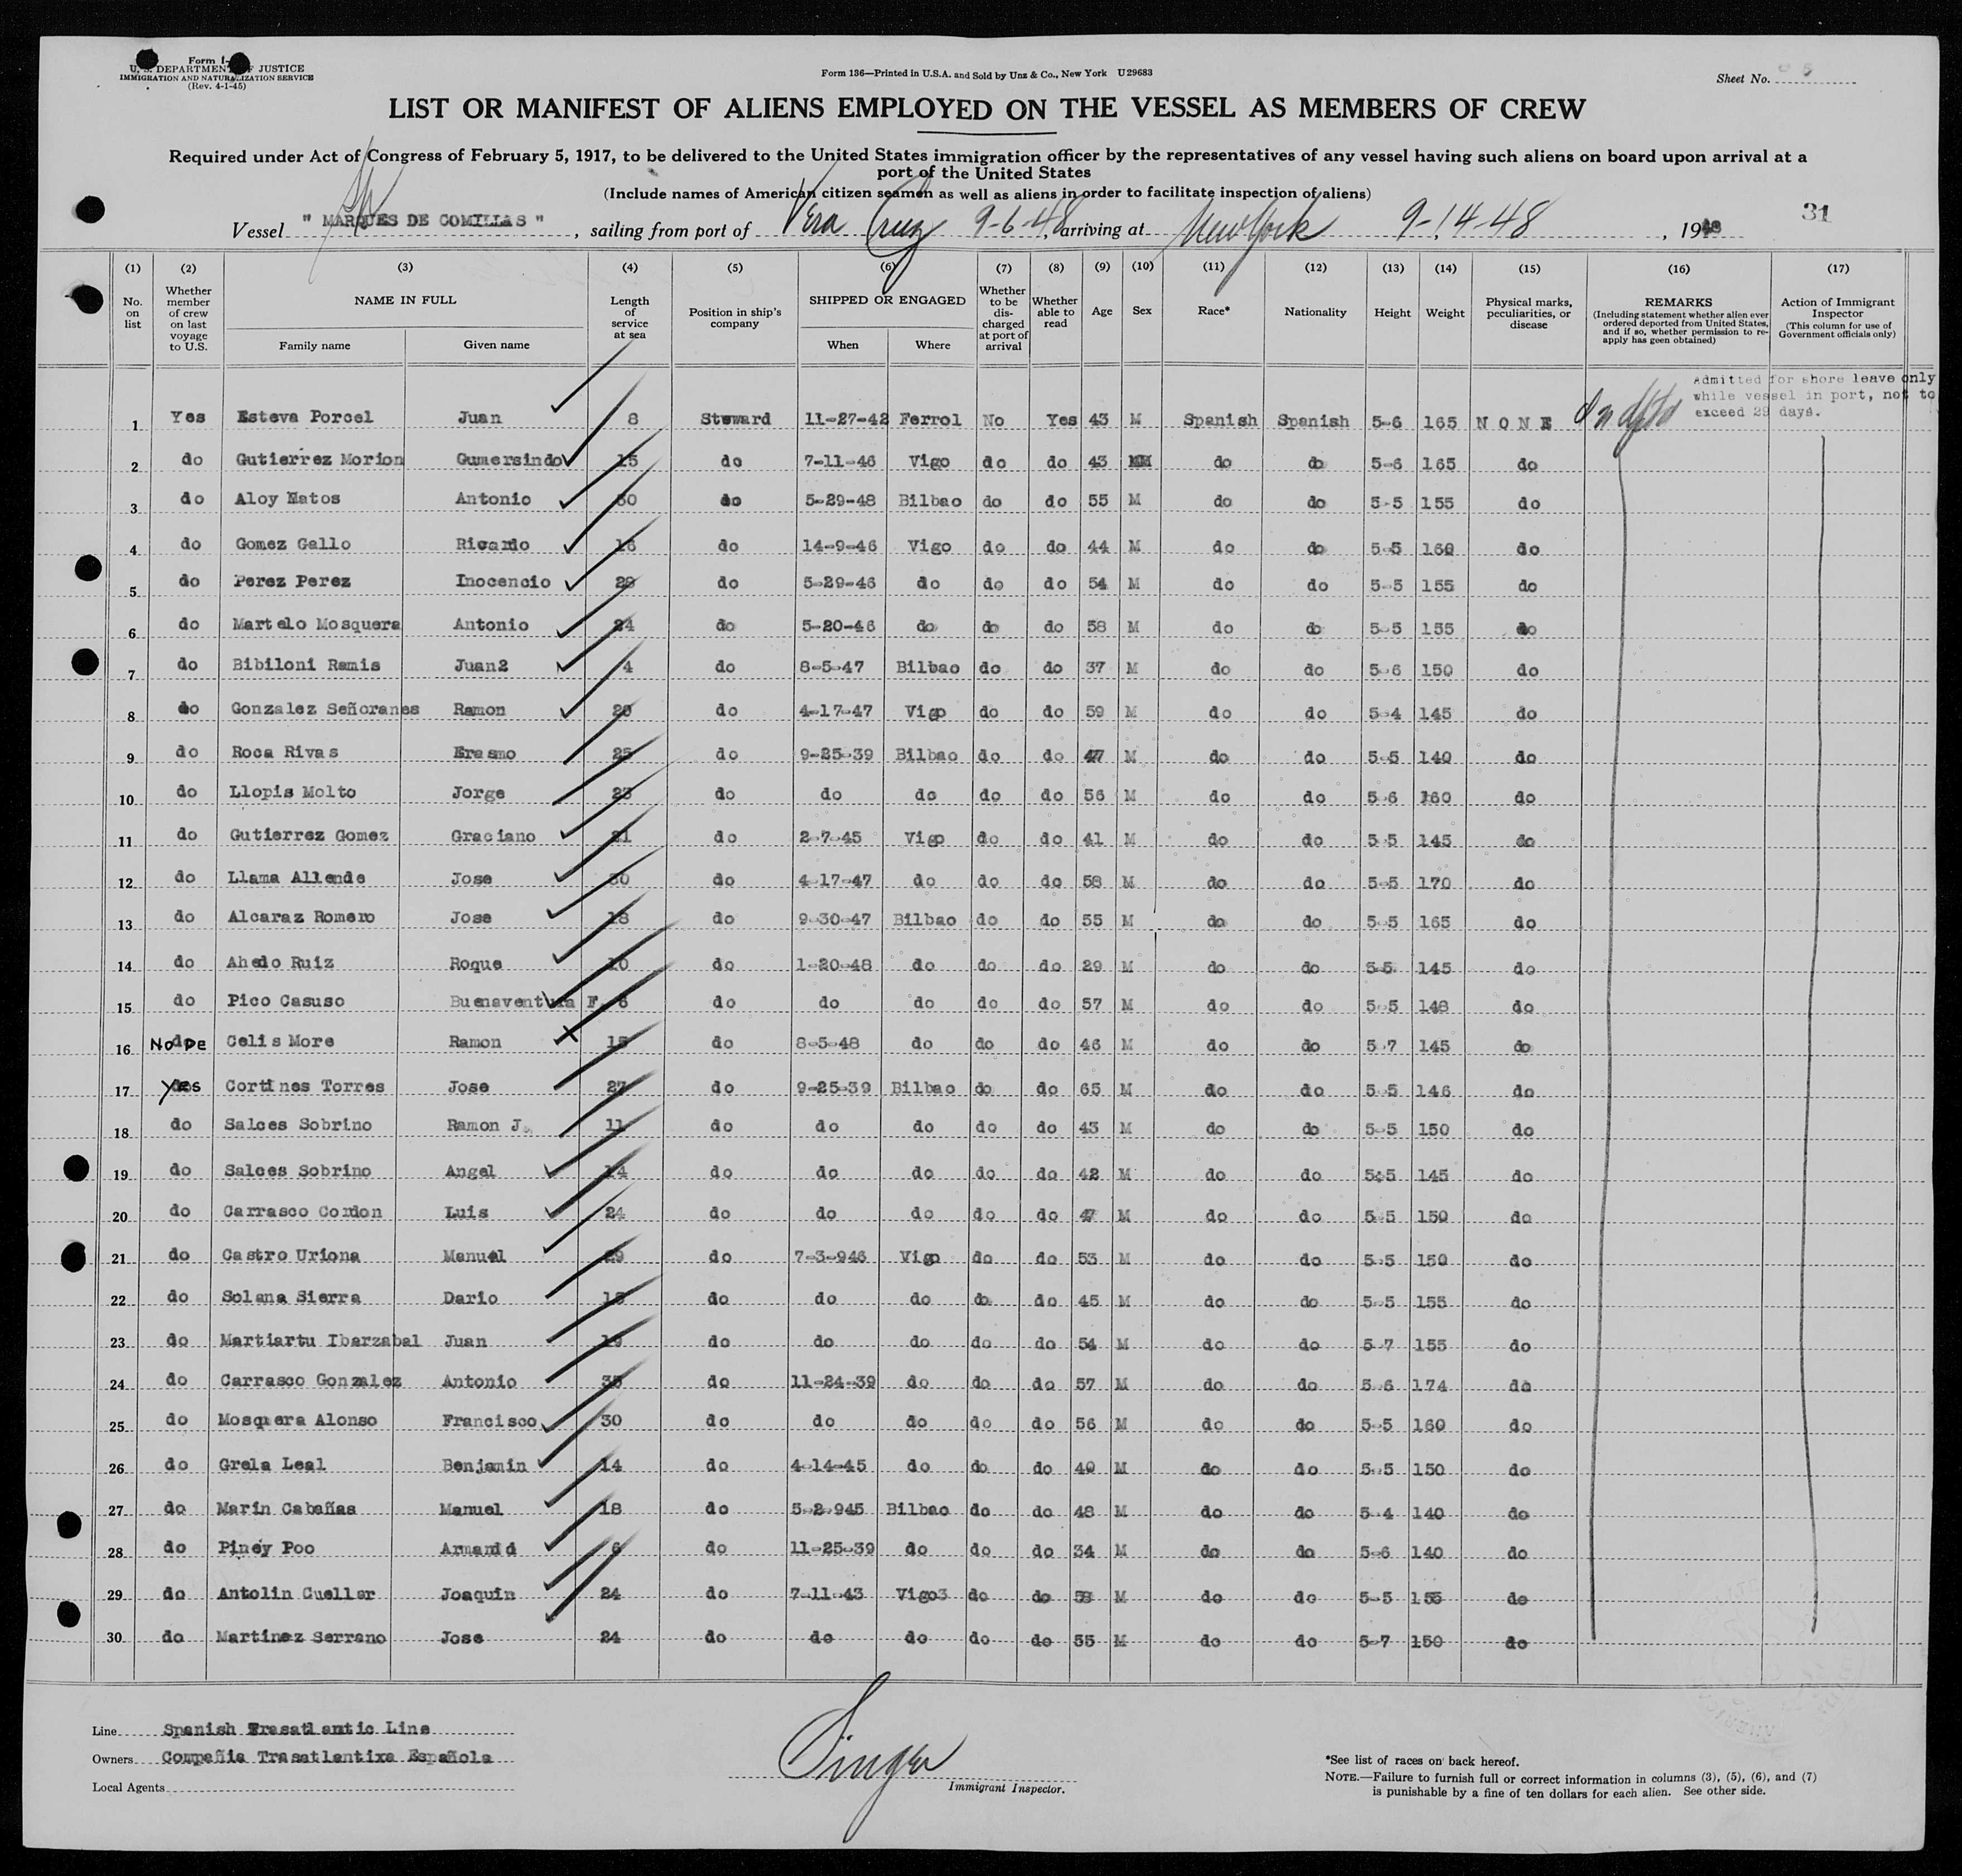 Form I-
U. S. DEPARTMENT OF JUSTICE
IMMIGRATION AND NATURALIZATION SERVICE
(Rev. 4-1-45)
Form 136—Printed in U.S.A. and Sold by Unz & Co., New York U29683
Sheet No.
LIST OR MANIFEST OF ALIENS EMPLOYED ON THE VESSEL AS MEMBERS OF CREW
Required under Act of Congress of February 5, 1917, to be delivered to the United States immigration officer by the representatives of any vessel having such aliens on board upon arrival at a
port of the United States
(Include names of American citizen seamen as well as aliens in order to facilitate inspection of aliens)
Vessel " MARQUES DE COMILLAS ", sailing from port of Vera Cruz 9-6-48, arriving at New York 9-14-48, 1948 31
(1) (2) (3) (4) (5) (6) (7) (8) (9) (10) (11) (12) (13) (14) (15) (16) (17)
No. on list Whether member of crew on last voyage to U.S. NAME IN FULL Family name Given name Length of service at sea Position in ship's company SHIPPED OR ENGAGED When Where Whether to be discharged at port of arrival Whether able to read Age Sex Race* Nationality Height Weight Physical marks, peculiarities, or disease REMARKS (Including statement whether alien ever ordered deported from United States, and if so, whether permission to re-apply has geen obtained) Action of Immigrant Inspector (This column for use of Government officials only)
Admitted for shore leave only
while vessel in port, not to
exceed 29 days.
1 Yes Esteva Porcel Juan 8 Steward 11-27-42 Ferrol No Yes 43 M Spanish Spanish 5-6 165 NONE
2 do Gutierrez Morion Gumersindo 15 do 7-11-46 Vigo do do 43 M do do 5-6 165 do
3 do Aloy Matos Antonio 30 do 5-29-48 Bilbao do do 55 M do do 5-5 155 do
4 do Gomez Gallo Ricardo 16 do 14-9-46 Vigo do do 44 M do do 5-5 160 do
5 do Perez Perez Inocencio 29 do 5-29-46 do do do 54 M do do 5-5 155 do
6 do Martelo Mosquera Antonio 24 do 5-20-46 do do do 58 M do do 5-5 155 do
7 do Bibiloni Ramis Juan2 4 do 8-5-47 Bilbao do do 37 M do do 5-6 150 do
8 do Gonzalez Señoranes Ramon 20 do 4-17-47 Vigo do do 59 M do do 5-4 145 do
9 do Roca Rivas Erasmo 25 do 9-25-39 Bilbao do do 47 M do do 5-5 140 do
10 do Llopis Molto Jorge 23 do do do do do 56 M do do 5-6 160 do
11 do Gutierrez Gomez Graciano 21 do 2-7-45 Vigo do do 41 M do do 5-5 145 do
12 do Llama Allende Jose 30 do 4-17-47 do do do 58 M do do 5-5 170 do
13 do Alcaraz Romero Jose 18 do 9-30-47 Bilbao do do 55 M do do 5-5 165 do
14 do Ahedo Ruiz Roque 10 do 1-20-48 do do do 29 M do do 5-5 145 do
15 do Pico Casuso Buenaventura F. 6 do do do do do 57 M do do 5-5 148 do
16 No PE Celis More Ramon 15 do 8-5-48 do do do 46 M do do 5-7 145 do
17 yes Cortines Torres Jose 27 do 9-25-39 Bilbao do do 65 M do do 5-5 146 do
18 do Salces Sobrino Ramon J. 11 do do do do do 43 M do do 5-5 150 do
19 do Salces Sobrino Angel 14 do do do do do 42 M do do 5-5 145 do
20 do Carrasco Cordon Luis 24 do do do do do 47 M do do 5-5 150 do
21 do Castro Uriona Manuel 29 do 7-3-946 Vigo do do 53 M do do 5-5 150 do
22 do Solana Sierra Dario do do do do do 45 M do do 5-5 155 do
23 do Martiartu Ibarzabal Juan 19 do do do do do 54 M do do 5-7 155 do
24 do Carrasco Gonzalez Antonio 35 do 11-24-39 do do do 57 M do do 5-6 174 do
25 do Mosquera Alonso Francisco 30 do do do do do 56 M do do 5-5 160 do
26 do Grela Leal Benjamin 14 do 4-14-45 do do do 40 M do do 5-5 150 do
27 do Marin Cabañas Manuel 18 do 5-2-945 Bilbao do do 48 M do do 5-4 140 do
28 do Piney Poo Armand d 6 do 11-25-39 do do do 34 M do do 5-6 140 do
29 do Antolin Cuellar Joaquin 24 do 7-11-43 Vigo3 do do 58 M do do 5-5 155 do
30 do Martinez Serrano Jose 24 do do do do do 55 M do do 5-7 150 do
Line Spanish Trasatlantic Line
Owners Compañia Trasatlantixa Española
Local Agents
Singer
Immigrant Inspector.
*See list of races on back hereof.
NOTE.—Failure to furnish full or correct information in columns (3), (5), (6), and (7)
is punishable by a fine of ten dollars for each alien. See other side.